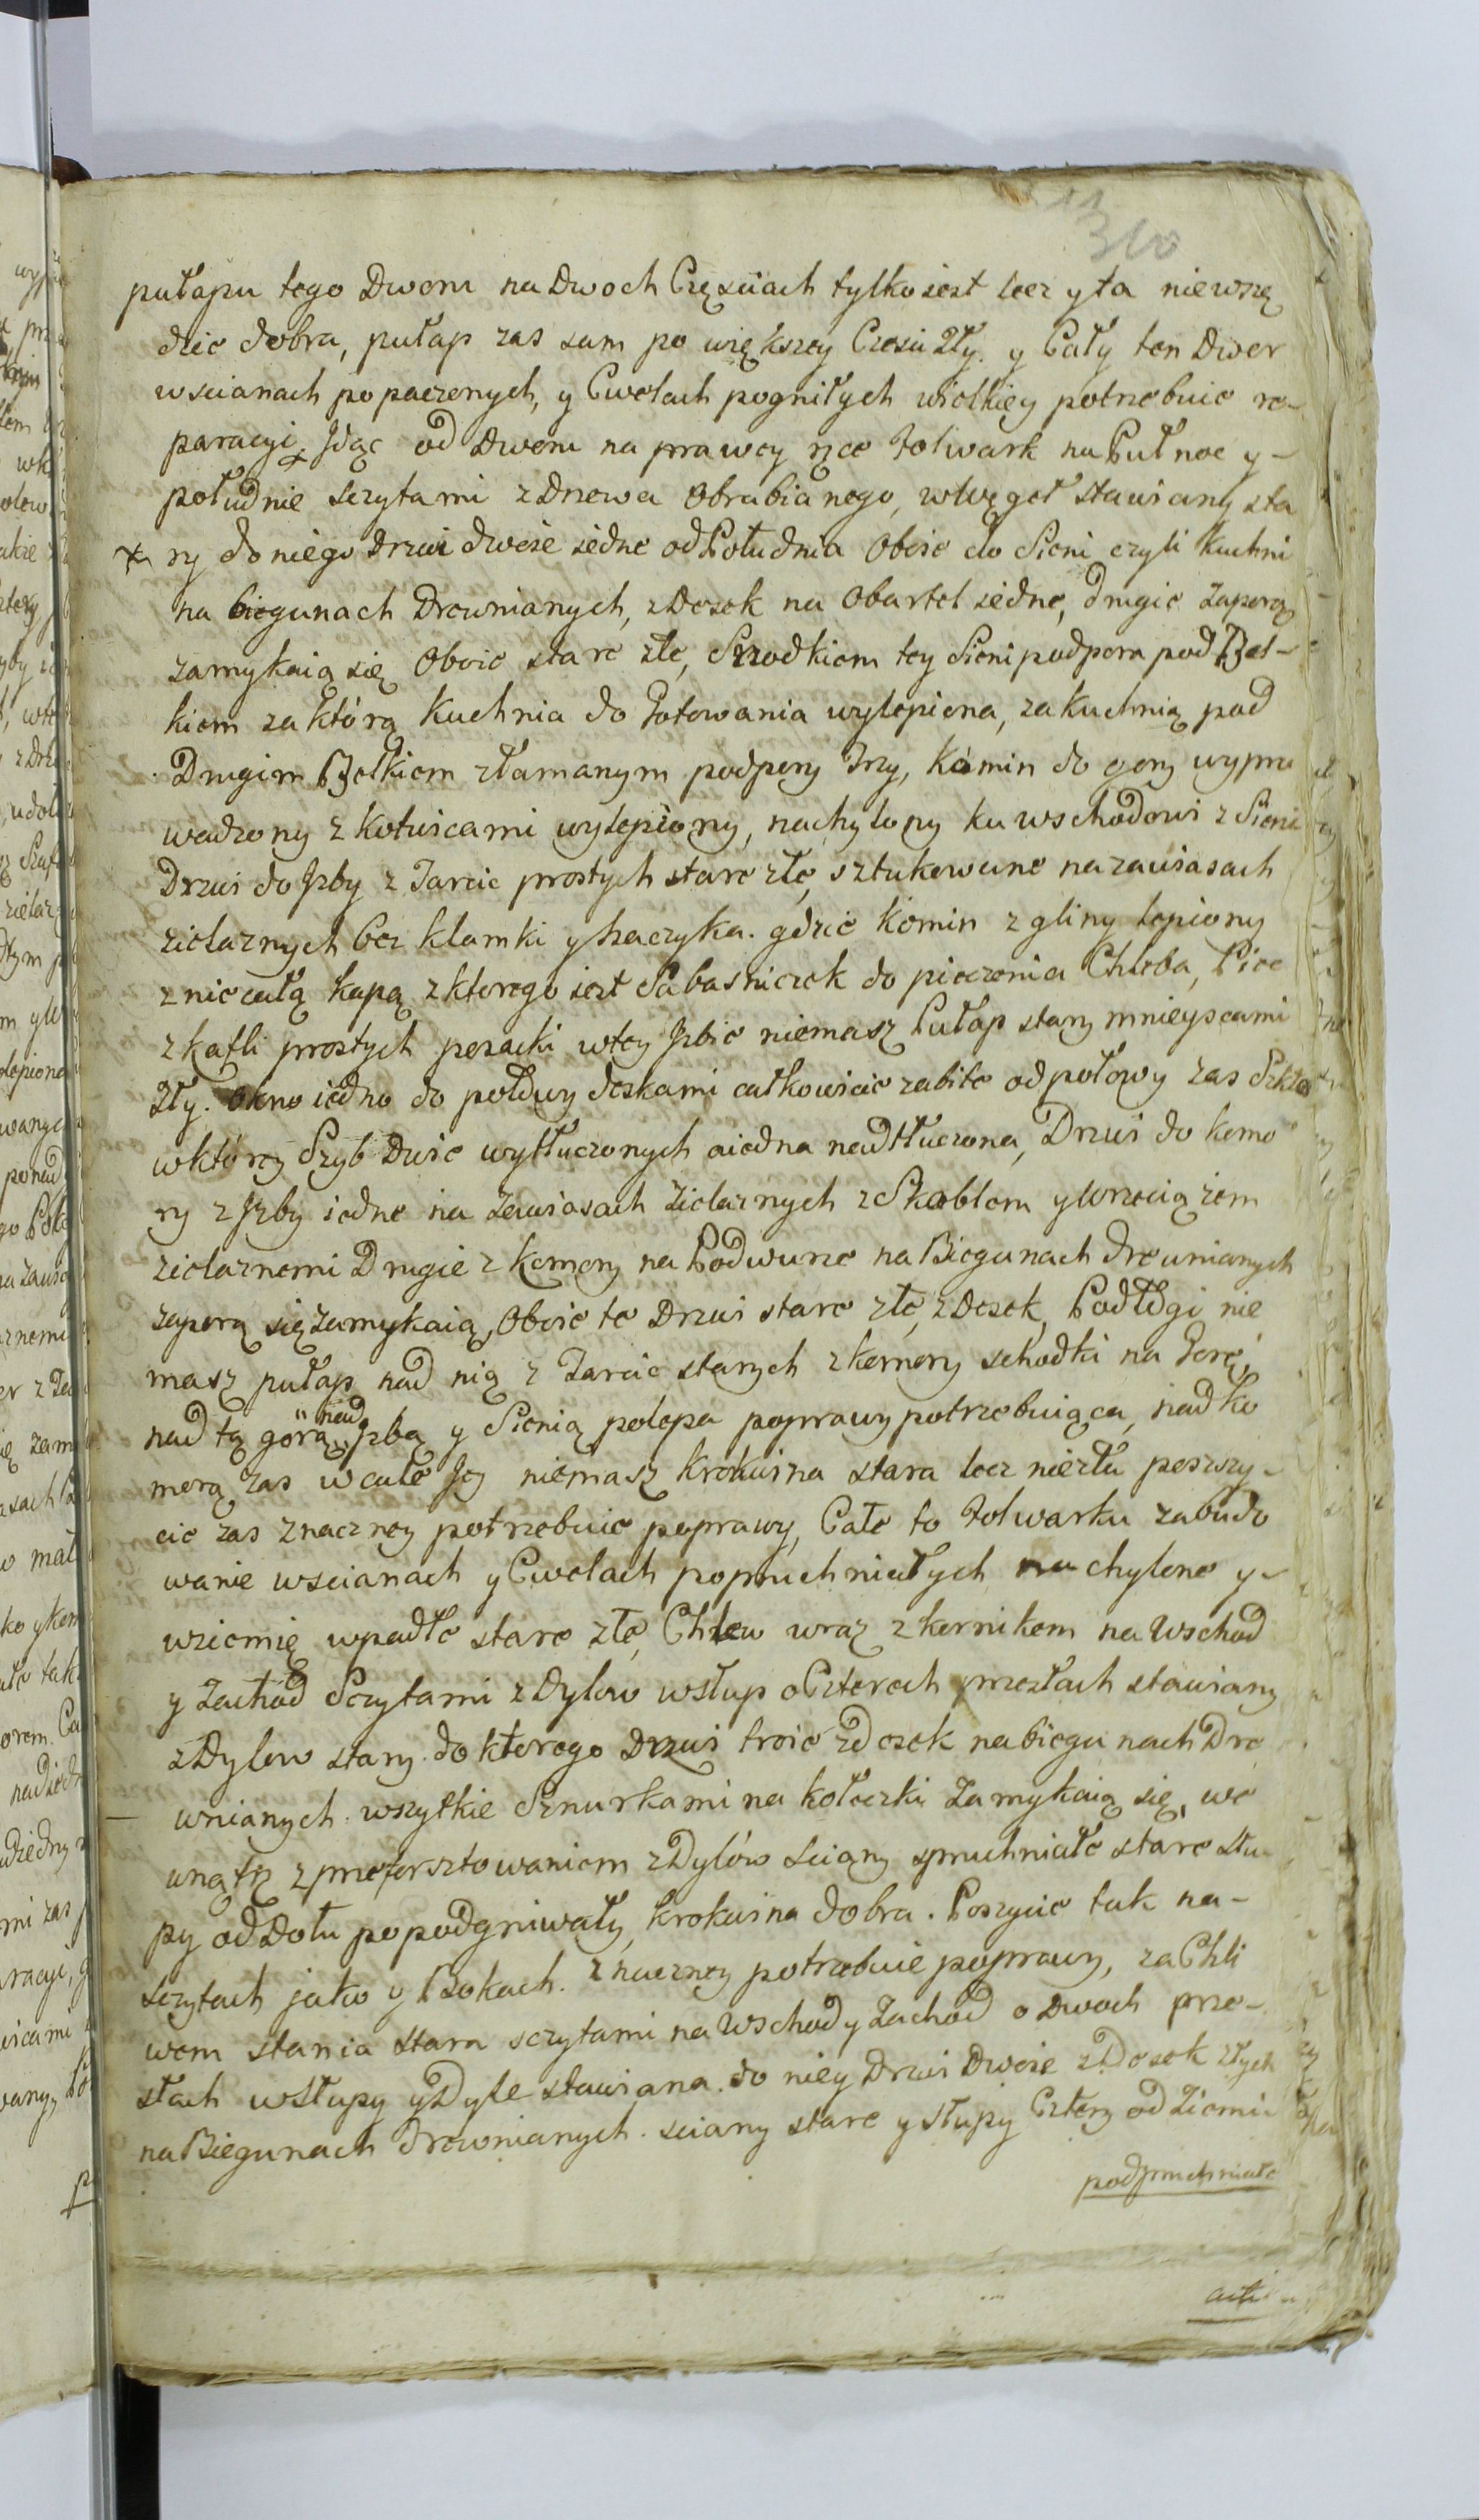 310
pułapu tego Dworu na Dwoch Częsciach tylko iest lecz y ta niewszę
dzie dobra, pułap zas sam po większey Częsci zły. y Cały ten Dwor
wscianach popaczonych, y Cwelach pogniłych wielkiey potrzebuie re-
paracyi × Idąc od Dworu na prawey ręce folwark na Pułnoc y-
południe sczytami z Drzewa Obrabianego, wtwęgeł stawiany sta
× ry do niego Drzwi dwoie iedne od Południa Oboie do Sieni czyli Kuchni
na biegunach Drewnianych, z Desek na Obartel iedne, drugie zaporą
zamykaią się Oboie stare złe, Srzodkiem tey Sieni podpora pod Bel-
kiem za którą Kuchnia do Gotowania wylepiona, za Kuchnią pod
Drugim Belkiem złamanym podpory Trzy, Komin do gory wypro
wadzony z Kotwicami wylepiony, nachylony ku wschodowi z Sieni
Drzwi do Izby z Tarcic prostych stare złe, sztukowane na zawiasach
zielaznych bez klamki y haczyka. gdzie Komin z gliny lepiony
z niecałą kapą z ktorego iest Sabasniczek do pieczenia Chleba, Piec
z kafli prostych posacki wtey Izbie niemasz Pułap stary mnieyscami
Zły. Okno iedno do połowy deskami całkowicie zabite od połowy zas Szkło
wktórey Szyb Dwie wytłuczonych a iedna nadtłuczona, Drzwi do komo
ry z Izby iedne na zawiasach Zielaznych z Skoblem y wrzeciązem
zielaznemi Drugie z komory na Podwurze na Biegunach drewnianych
zaporą się zamykaią, Oboie te Drzwi stare złe, z Desek, Podłogi nie
masz pułap nad nią z Tarcic starych z komory schodki na Gorę,
nad tą górą, nad Izbą y Sienią polepa poprawy potrzebuiąca, nad ko
morą zas wcale Iey niemasz Krokwina stara lecz niezła poszy-
cie zas znaczney potrzebuie poprawy, Całe to folwarku zabudo
wanie wscianach y Cwelach popruchniałych nachylone y-
wziemię wpadłe stare złe, Chlew wraz z kornikem na Wschod
y Zachod Sczytami z Dylow wsłup o Czterech przesłach stawiany
z Dylow stary. do ktorego Drzwi troie z Desek na biegunach Dre
wnianych. wszytkie Sznurkami na kołeczki zamykaią się, we
wnątrz z przeforsztowaniem z Dylów sciany spruchniałe stare słu
py od Dołu popodgniwały, krokwina dobra. Poszycie tak na-
sczytach jako y Bokach. znaczney potrzebuie poprawy, za Chli
wem stania stara sczytami na Wschod y Zachod o Dwoch prze-
słach wsłupy y Dyle stawiana. do niey Drzwi Dwoie z Desek złych
na Biegunach Drewnianych. sciany stare y słupy Cztery od Ziemi
podpruchniałe